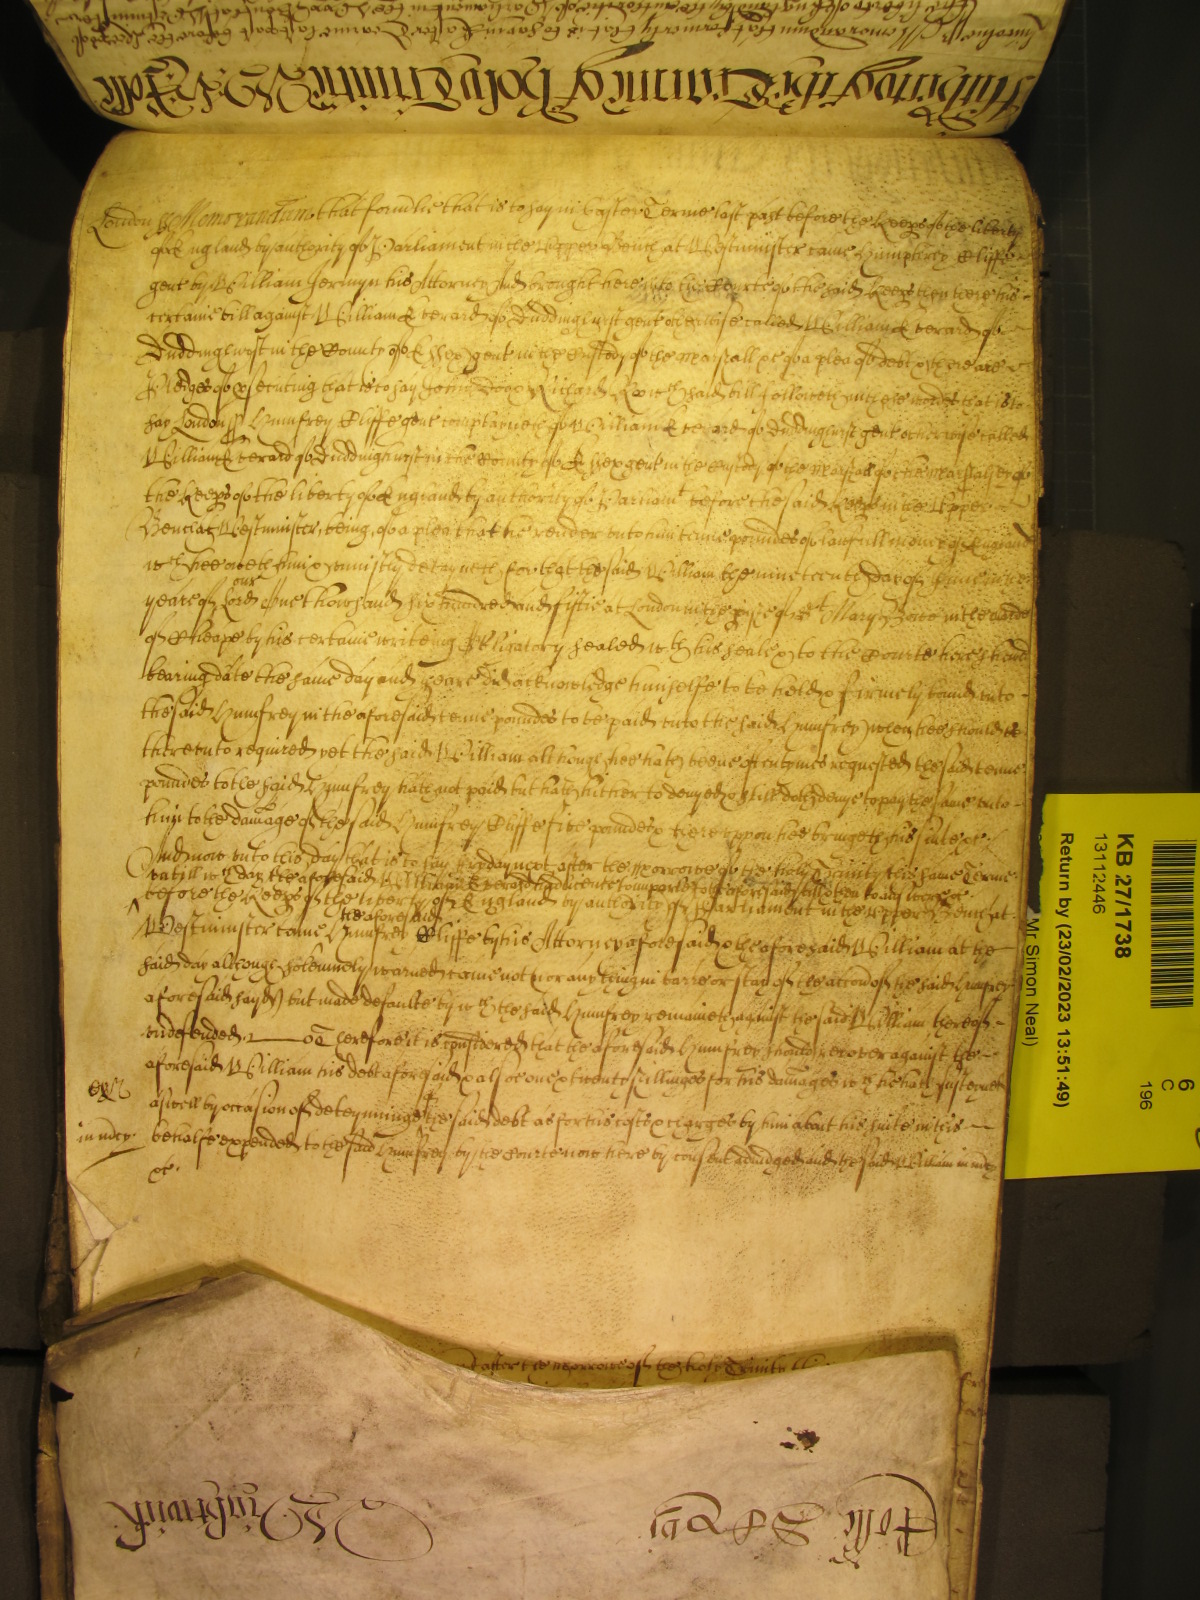 London ss Memorandum that formerlie that is to say in Easter Terme last past before the Keep[er]s of the liberty
of England by authority of Parliament in the Upper Bench at Westminster came Humphrey Cliffe
gent by William Jermyn his Attorney And brought here into the Courte of the said Keep[er]s then there his
certaine bill against William Everard of Duddinghurst gent otherwise called William Everard of
Duddinghurst in the County of Essex gent in the Custody of the Marshall &c of a plea of debt & there are
Pledges of prosecuting that is to say John Doo & Richard Roo wch said bill followeth in these words that is to
say London ss Humfrey Cliffe gent complayneth of William Everard of Duddinghurst gent otherwise called
William Everard of Duddinghurst in the County of Essex gent in the Custody of the Marshall of the Marshalsey of
the Keep[er]s of the liberty of England by authority of Parliamt before the said Keep[er]s in the Upper
Bench at Westminster being of a plea that he render unto him tenne poundes of lawfull money of England
wch hee oweth him & uniustly detayneth For that the said William the nineteenth day of June in the
yeare of our Lord One thowsand six hundred and fiftie at London in the p[ar]ish of St Mary Bowe in the warde
of Cheape by his certaine writeing Obligatory sealed wth his seale & to the Courte here shewed
bearing date the same day and yeare did acknowledge himselfe to be held & firmely bound unto
the said Humfrey in the aforesaid tenne poundes to be paid unto the said Humfrey when hee should be
thereunto required yet the said William although hee hath beene oftentymes requested the said tenne
poundes to the said Humfrey hath not paid but hath hitherto denyed & still doth denye to pay the same unto
him to the damage of the said Humfrey Cliffe five poundes & thereuppon hee bringeth his suite &c
And now unto this day that is to say Fryday next after the Morrowe of the holy Trinity this same Terme
untill wch day the aforesaid William Everard had licence to imparle to the aforesaid bill then to answere &c
before the Keep[er]s of the liberty of England by authority of Parliament in the Upper Bench at
Westminster came the aforesaid Humfrey Cliffe by his Attorney aforesaid & the aforesaid William at the
said day although solemnely warned came not nor any thing in barre or stay of the accon of the said Humfrey
aforesaid sayd but made defaulte by wch the said Humfrey remaineth against the said William thereof
undefended Therefore it is considered that the aforesaid Humfrey should recover against the
aforesaid William his debt aforesaid & alsoe one & twenty shillinges for his damages wch he hath susteyned
aswell by occasion of deteyninge the said debt as for his costs & charges by him about his suite in this
behalfe expended to the said Humfrey by the Courte now here by consent adiudged and the said William in mercy
&c.
in m[er]cy
after the morrowe of the holy Trinity
KB 27/1738
13112446
Return by (23/02/2023 13:51:49)
Mr Simon Neal)
6
C
196